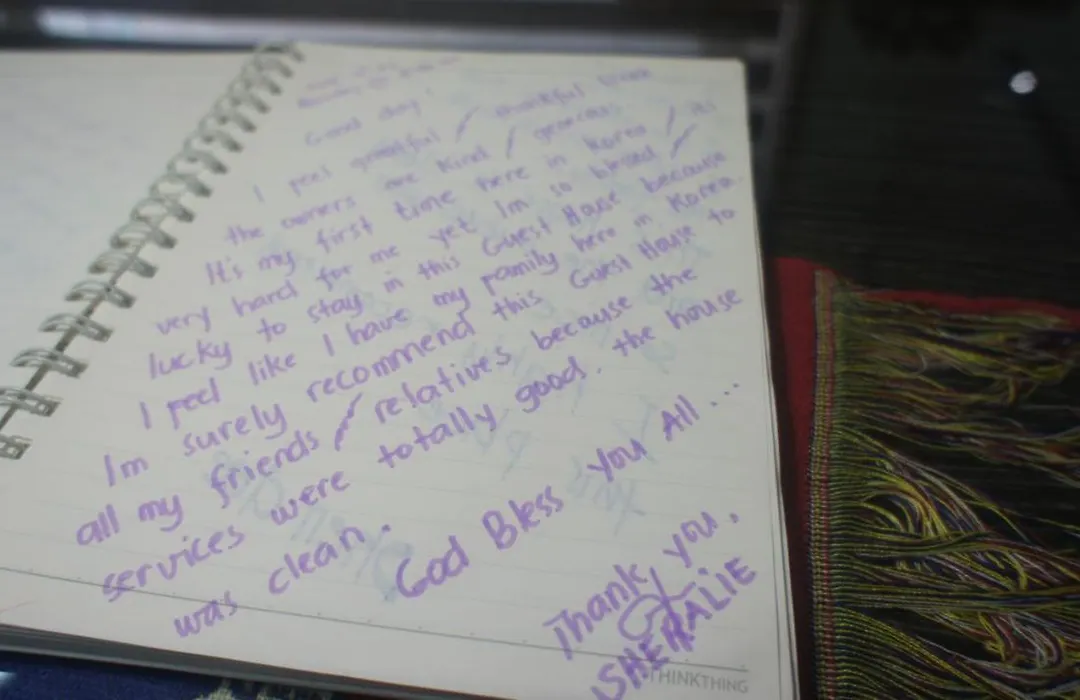 Good day!
I feel grateful / thankful
the owners are kind / generous.
It's my first time here in Korea / its
very hard for me yet Im so blessed /
lucky to stay in this Guest House because
I feel like I have my family here in Korea
Im surely recommend this Guest House to
all my friends / relatives because the
services were totally good. the house
was clean.
God Bless you All ...
Thank you,
SHERALIE
THINKTHING